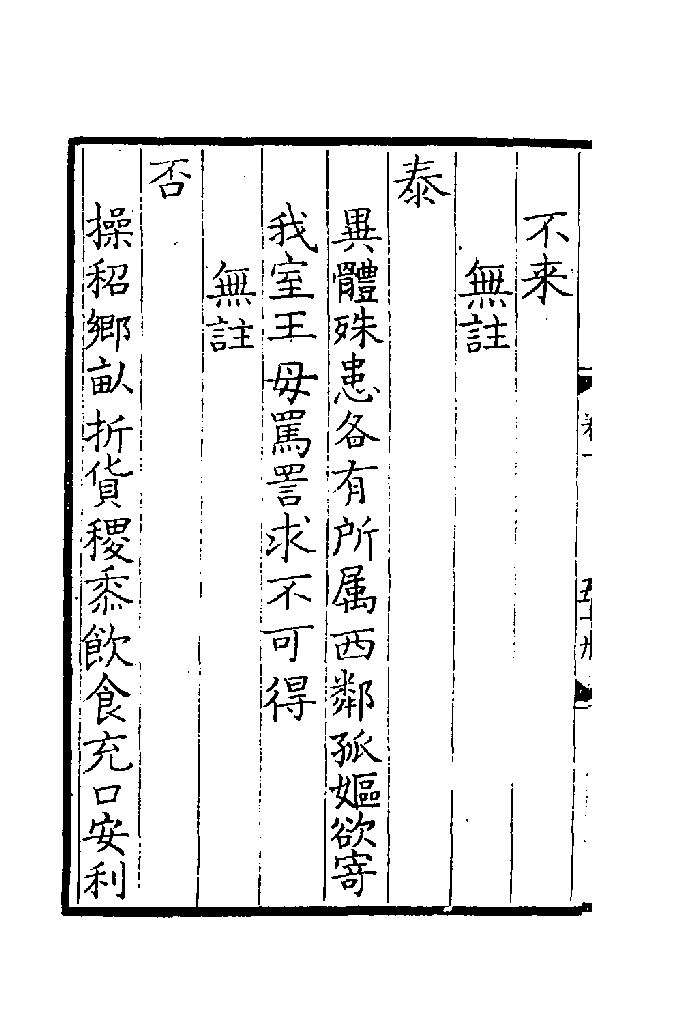 不来
無註
泰
異體殊患各有所属西鄰孤嫗欲寄
我室王母罵詈求不可得
無註
否
操秬鄉畝折貨稷黍飲食充口安利